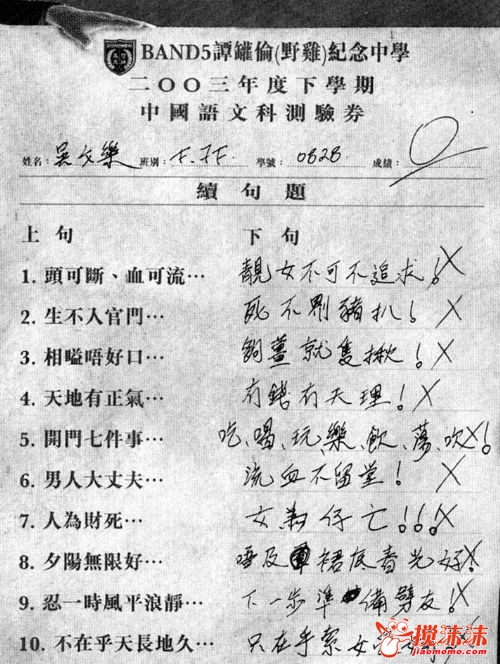 BAND5譚罐倫(野雞)紀念中學
二〇〇三年度下學期
中國語文科測驗券
姓名: 吳文樂 班別: F.3F. 學號: 0828 成績: 0
續句題
上句 下句
1. 頭可斷、血可流… 靚女不可不追求! X
2. 生不入官門… 死不劏豬扒! X
3. 相嗌唔好口… 夠薑就隻揪! X
4. 天地有正氣… 有錢有天理! X
5. 開門七件事… 吃、喝、玩、樂、飲、蕩、吹! X
6. 男人大丈夫… 流血不留堂! X
7. 人為財死… 女為仔亡!!! X
8. 夕陽無限好… 唔及裙底春光好! X
9. 忍一時風平浪靜… 下一步準備劈友! X
10. 不在乎天長地久… 只在乎索女
搅沫沫
jiaomomo.com